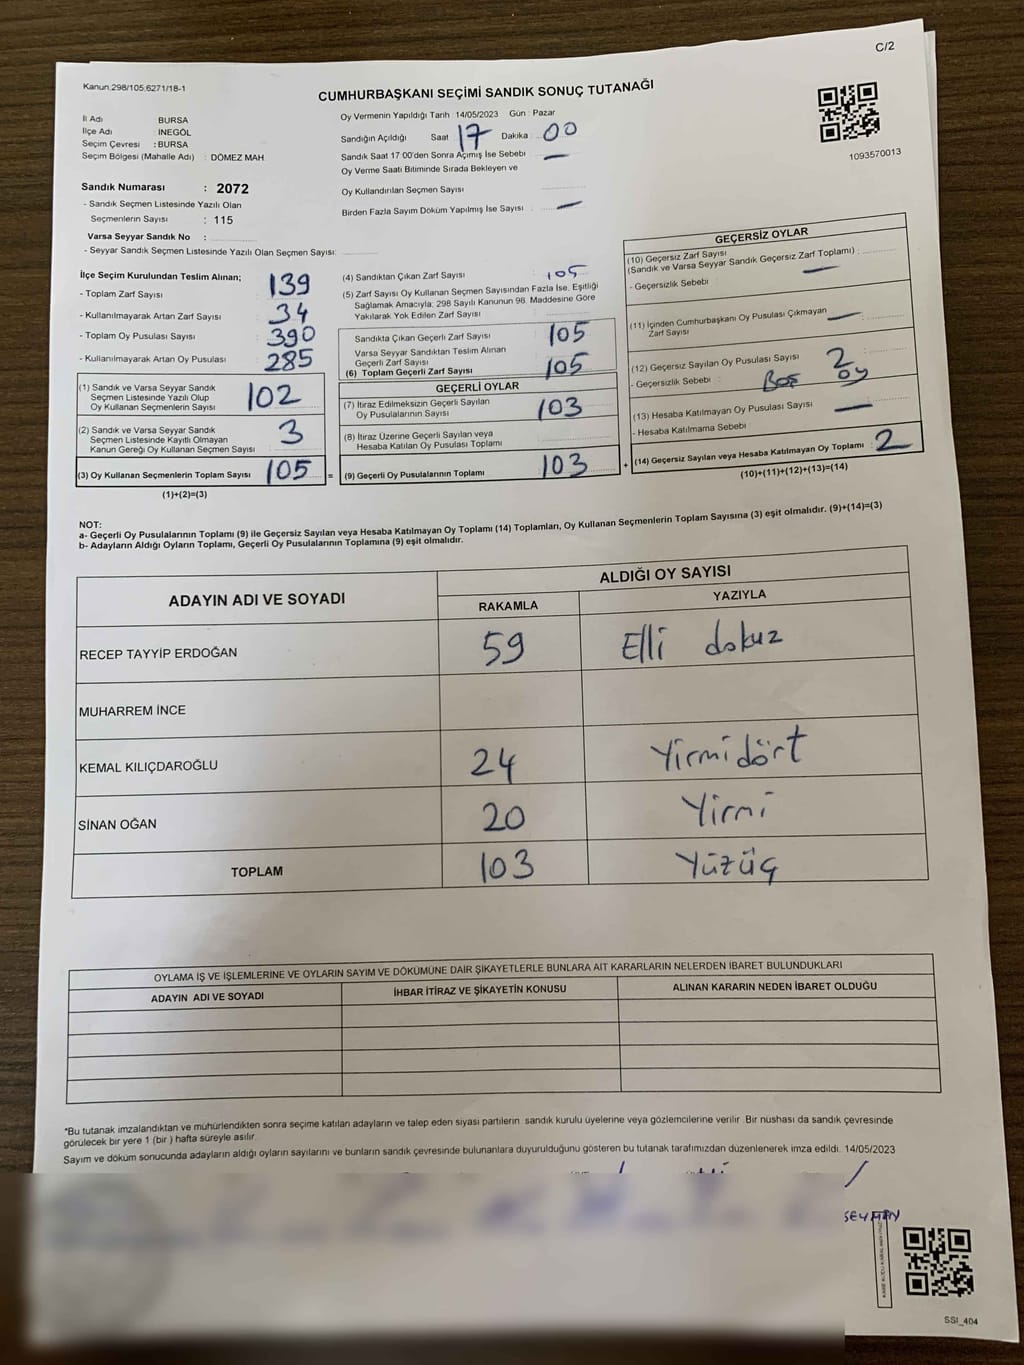 C/2
Kanun.298/105,6271/18-1
CUMHURBAŞKANI SEÇİMİ SANDIK SONUÇ TUTANAĞI
İl Adı BURSA
İlçe Adı İNEGÖL
Seçim Çevresi : BURSA
Seçim Bölgesi (Mahalle Adı) : DÖMEZ MAH.
Oy Vermenin Yapıldığı Tarih 14/05/2023 Gün : Pazar
Sandığın Açıldığı Saat 17 Dakika 00
Sandık Saat 17 00'den Sonra Açımış İse Sebebi —
Oy Verme Saati Bitiminde Sırada Bekleyen ve
Oy Kullandırılan Seçmen Sayısı
Birden Fazla Sayım Döküm Yapılmış İse Sayısı —
1093570013
Sandık Numarası : 2072
- Sandık Seçmen Listesinde Yazılı Olan
Seçmenlerin Sayısı : 115
Varsa Seyyar Sandık No :
- Seyyar Sandık Seçmen Listesinde Yazılı Olan Seçmen Sayısı:
İlçe Seçim Kurulundan Teslim Alınan;
- Toplam Zarf Sayısı 139
- Kullanılmayarak Artan Zarf Sayısı 34
- Toplam Oy Pusulası Sayısı 390
- Kullanılmayarak Artan Oy Pusulası 285
(1) Sandık ve Varsa Seyyar Sandık
Seçmen Listesinde Yazılı Olup
Oy Kullanan Seçmenlerin Sayısı 102
(2) Sandık ve Varsa Seyyar Sandık
Seçmen Listesinde Kayıtlı Olmayan
Kanun Gereği Oy Kullanan Seçmen Sayısı 3
(3) Oy Kullanan Seçmenlerin Toplam Sayısı 105 =
(1)+(2)=(3)
(4) Sandıktan Çıkan Zarf Sayısı 105
(5) Zarf Sayısı Oy Kullanan Seçmen Sayısından Fazla İse, Eşitliği
Sağlamak Amacıyla; 298 Sayılı Kanunun 98. Maddesine Göre
Yakılarak Yok Edilen Zarf Sayısı
Sandıkta Çıkan Geçerli Zarf Sayısı 105
Varsa Seyyar Sandıktan Teslim Alınan
Geçerli Zarf Sayısı
(6) Toplam Geçerli Zarf Sayısı 105
GEÇERLİ OYLAR
(7) İtiraz Edilmeksizin Geçerli Sayılan
Oy Pusulalarının Sayısı 103
(8) İtiraz Üzerine Geçerli Sayılan veya
Hesaba Katılan Oy Pusulası Toplamı
(9) Geçerli Oy Pusulalarının Toplamı 103 +
GEÇERSİZ OYLAR
(10) Geçersiz Zarf Sayısı
(Sandık ve Varsa Seyyar Sandık Geçersiz Zarf Toplamı) :
- Geçersizlik Sebebi —
(11) İçinden Cumhurbaşkanı Oy Pusulası Çıkmayan
Zarf Sayısı —
(12) Geçersiz Sayılan Oy Pusulası Sayısı 2
- Geçersizlik Sebebi : Boş oy
(13) Hesaba Katılmayan Oy Pusulası Sayısı —
- Hesaba Katılmama Sebebi :
(14) Geçersiz Sayılan veya Hesaba Katılmayan Oy Toplamı : 2
(10)+(11)+(12)+(13)=(14)
NOT:
a- Geçerli Oy Pusulalarının Toplamı (9) ile Geçersiz Sayılan veya Hesaba Katılmayan Oy Toplamı (14) Toplamları, Oy Kullanan Seçmenlerin Toplam Sayısına (3) eşit olmalıdır. (9)+(14)=(3)
b- Adayların Aldığı Oyların Toplamı, Geçerli Oy Pusulalarının Toplamına (9) eşit olmalıdır.
ADAYIN ADI VE SOYADI ALDIĞI OY SAYISI
RAKAMLA YAZIYLA
RECEP TAYYİP ERDOĞAN 59 Elli dokuz
MUHARREM İNCE
KEMAL KILIÇDAROĞLU 24 Yirmidört
SİNAN OĞAN 20 Yirmi
TOPLAM 103 Yüzüç
OYLAMA İŞ VE İŞLEMLERİNE VE OYLARIN SAYIM VE DÖKÜMÜNE DAİR ŞİKAYETLERLE BUNLARA AİT KARARLARIN NELERDEN İBARET BULUNDUKLARI
ADAYIN ADI VE SOYADI İHBAR İTİRAZ VE ŞİKAYETİN KONUSU ALINAN KARARIN NEDEN İBARET OLDUĞU
*Bu tutanak imzalandıktan ve mühürlendikten sonra seçime katılan adayların ve talep eden siyasi partilerin sandık kurulu üyelerine veya gözlemcilerine verilir. Bir nüshası da sandık çevresinde
görülecek bir yere 1 (bir ) hafta süreyle asılır.
Sayım ve döküm sonucunda adayların aldığı oyların sayılarını ve bunların sandık çevresinde bulunanlara duyurulduğunu gösteren bu tutanak tarafımızdan düzenlenerek imza edildi. 14/05/2023
SEYHAN
SSİ_404